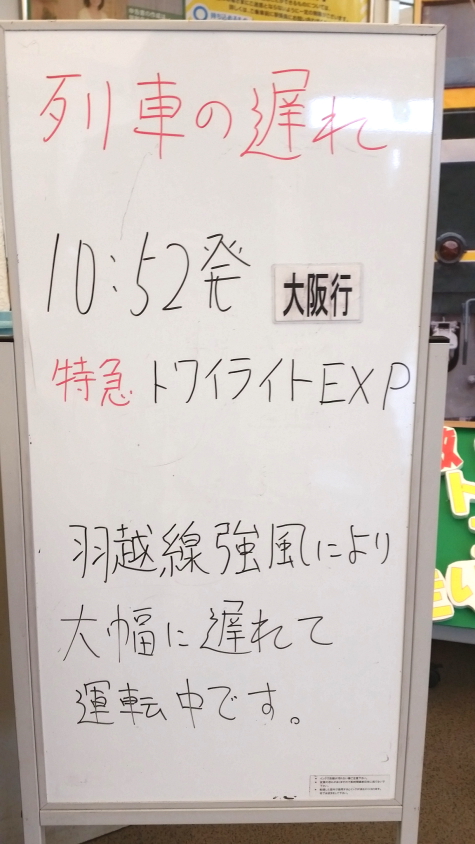 列車の遅れ
10:52発 大阪行
特急 トワイライトEXP
羽越線強風により
大幅に遅れて
運転中です。